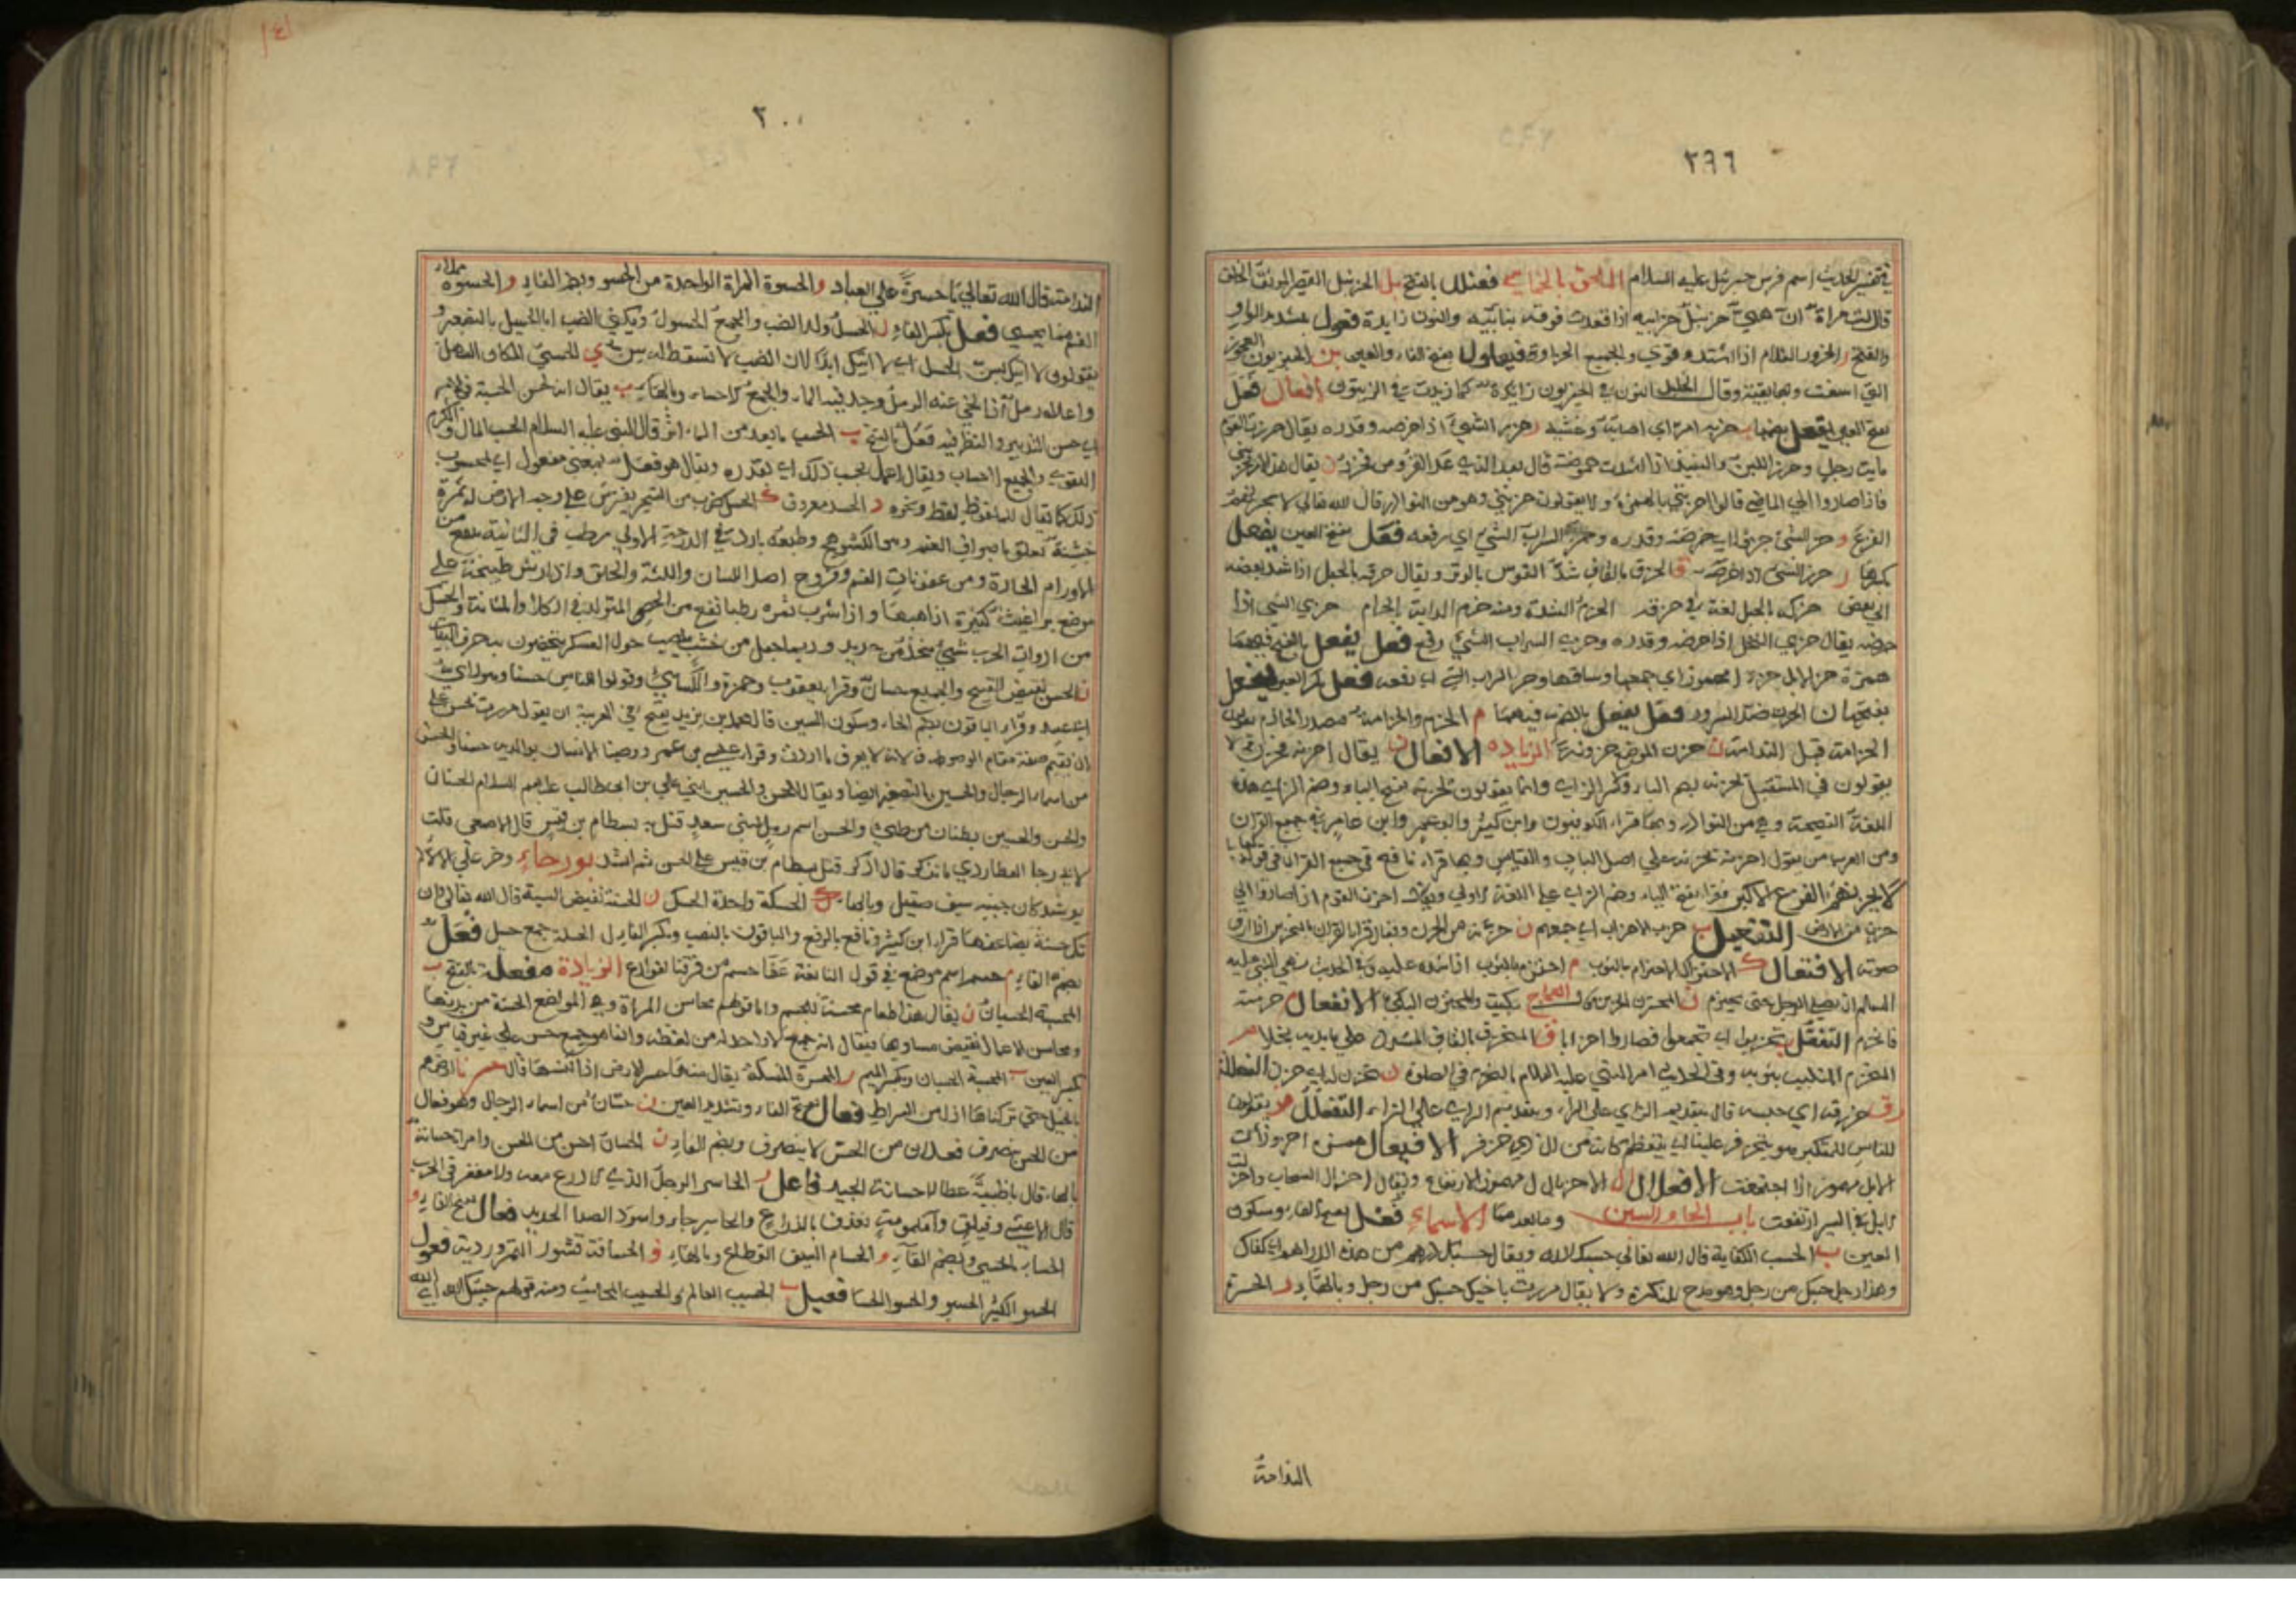 ٢٩٦
في تفسير الحديث اسم فرس جبرئيل عليه السلام الملحق بالخماسي فعنلل بالفتح بل الحزنبل القصير الموثق الخلق
قالت امراة ان هني حزنبل حزابيه اذا قعدت فوقه نبابيه والنون زايدة فعول بتشديد الواو
والفتح ر الحزور الغلام اذا اشتد وقوي والجميع الحزاورة فيعلول بفتح الفاء والعين بن الحيزبون العجوز
التي اسنت وبها بقية وقال الخليل النون في الحيزبون زايدة كما زيدت في الزيتون افعال فعل
بفتح العين يفعل بضمها ب حزبه امر اي اصابه وغشيه ر حزر الشيء اذا خرصه وقدره يقال حزرت القوم
مايت رجل وحزر اللبن والنبيذ اذا اشتدت حموضته قال بعد الذي عدا القروص فحزر ن يقال هذا الامر يحزنني
فاذا صاروا الى الماضي قالوا احزنني بالهمزة ولا يقولون حزنني وهو من النوادر قال الله تعالى لا يحزنهم
الفزع و حزا الشيء حزوا اي خرصه وقدره وحزا السراب الشيء اي رفعه فعل بفتح العين يفعل
بكسرها ر حزر الشيء اذا خرصه ق الحزق بالقاف شد القوس بالوتر ويقال حزقه بالحبل اذا شد بعضه
الى بعض حزكه بالحبل لغة في حزقه الحزم الشدة ومنه حزم الدابة بالحزام حزي الشيء اذا
خرصه يقال حزي النخل اذا خرصه وقدره وحزى السراب الشيء رفع فعل يفعل بالفتح فيهما
همزة حزا الابل حزءا مهموز اي جمعها وساقها وحزا السراب الشيء اي رفعه فعل بكسر العين يفعل
بفتحها ن الحزن ضد السرور فعل يفعل بالضم فيهما م الحزم والحزامة مصدر الحازم يقولون
الحزامة قبل الندامة ن حزن الموضع حزونة الزيادة الافعال ن يقال احزنه فحزن ولا
يقولون في المستقبل يحزنه بضم الياء وكسر الزاي وانما يقولون يحزنه بفتح الياء وضم الزاي هذه
اللغة الفصيحة وهي من النوادر وبها قراء الكوفيون وابن كثير وابو عمرو وابن عامر في جميع القران
ومن العرب من يقول احزنه يحزنه على اصل الباب والقياس وبها قراء نافع في جميع القران الا في قوله
لا يحزنهم الفزع الاكبر فقرا بفتح الياء وضم الزاي على اللغة الاولى ويقال احزن القوم اذا صاروا الى
حزن من الارض التفعيل ب حزب الاحزاب اي جمعهم ن حزنه من الحزن وفلان يقرا القران بالتحزين اذا ارق
صوته الافتعال ك الاحتزاك الاحتزام بالثوب م احتزم بالثوب اذا شده عليه وفي الحديث نهى النبي عليه
السلام ان يصلي الرجل حتى يحتزم ن المحتزن الحزين قال العجاج بكيت والمحتزن البكي الانفعال م حزمته
فانحزم التفعل ب تحزبوا اي تجمعوا فصاروا احزابا ق المتحزق بالقاف المتشدد على ما بيديه بخلا م
المتحزم المتلبب بثوبه وفي الحديث امر النبي عليه السلام بالتحزم في الصلوة ن تحزن له اي حزن الفعللة
رق حزرقه اي حبسه قال بتقديم الزاي على الراء وبتقديم الراء على الزاي التفعلل مو يقولون
للناس للمتكبر هو يتحزفر علينا اي يتعظم الافيعال همز احزوزأت
الابل مهموز اذا اجتمعت الافعلال ل الاحزيلال مهموز الارتفاع ويقال احزأل السحاب واحزألت
الابل في السير ارتفعت باب الحاء والسين وما بعدهما الاسماء فعل بفتح الفاء وسكون
العين ب الحسب الكفاية قال الله تعالى حسبك الله ويقال حسبك درهم من هذه الدراهم اي كفاك
وهذا رجل حسبك من رجل وهو مدح للنكرة ولا يقال مررت باخيك حسبك من رجل وبالهاء ر الحسرة
الندامة
٣٠٠
الندامة قال الله تعالى يا حسرة على العباد و الحسوة المراة الواحدة من الحسو وبضم الفاء و الحسوة ملء
الفم مما يحسى فعل بكسر الفاء ل الحسل ولد الضب والجمع الحسول ويكنى الضب ابا الحسيل بالتصغير و
يقولون لا اتيك سن الحسل اي لا اتيك ابدا لان الضب لا تسقط له سن ي الحسي المكان السهل
واعلاه رمل اذا نحي عنه الرمل وجد فيه الماء والجمع الاحساء وبالهاء ب يقال انه لحسن الحسبة في الامر
اي حسن التدبير والنظر فيه فعل بالفتح ب الحسب ما يعد من المآثر قال النبي عليه السلام الحسب المال والكرم
التقوى والجميع احساب ويقال اعمل بحسب ذلك اي بقدره ويقال هو فعل بمعنى مفعول اي محسوب
ذلك كما يقال للملقوط لقط ونحوه د الحسد معروف ك الحسك ضرب من الشجر يفترش على وجه الارض له ثمرة
خشنة تعلق باصواف الغنم وطبعه بارد في الدرجة الاولى رطب في الثانية ينفع من
الاورام الحارة ومن عفونات الفم وقروح اصل اللسان واللثة والحلق واذا رش طبيخه على
موضع براغيث كثيرة اذهبها واذا شرب ثمره رطبا نفع من الحصى المتولد في الكلا والمثانة والحسك
من ادوات الحرب شيء متخذ من حديد وربما جعل من خشب ينصب حول العسكر
ن الحسن نقيض القبيح والجميع حسان وقرا يعقوب وحمزة والكسائي وقولوا للناس حسنا
وقراء الباقون بضم الحاء وسكون السين قال محمد بن يزيد يقبح في العربية ان يقول مررت بحسن على
ان تقيم صفة مقام الموصوف لانه لا يعرف ما اردت وقرا عيسى بن عمر ووصينا الانسان بوالديه حسنا والحسن
من اسماء الرجال والحسين بالتصغير ايضا ويقال للحسن والحسين ابني علي بن ابي طالب عليهم السلام الحسنان
والحسن والحسين بطنان من طيء والحسن اسم رمل لبني سعد قتل به بسطام بن قيس قال الاصمعي قلت
لابي رجا العطاردي ما تذكر قال اذكر قتل بسطام بن قيس على الحسن ثم انشد بو رجاء وخر على الالاءة لم
يوسد كان جبينه سيف صقيل وبالهاء ك الحسكة واحدة الحسك ن الحسنة نقيض السيئة قال الله تعالى وان
تك حسنة يضاعفها قراء ابن كثير ونافع بالرفع والباقون بالنصب وبكسر الفاء ل الحسلة جمع حسل فعل
بضم الفاء م حسم اسم موضع في قول النابغة عفا حسم من فرتنا فالفوارع الزيادة مفعلة بالفتح ب
المحسبة الحسبان ن يقال هذا طعام محسنة للجسم واما قولهم محاسن المراة وهي المواضع الحسنة من بدنها
ومحاسن الاعمال نقيض مساويها فيقال انه جمع لا واحد له من لفظه وانما هو جمع حسن على غير قياس و
بكسر العين ب المحسبة الحسبان وبكسر الميم ر المحسرة المكنسة يقال منه حسر الارض اذا كنسها قال
بالخيل حتى تركناها اذل من الصراط فعال بفتح الفاء وتشديد العين ن حسان من اسماء الرجال وهو فعال
من الحسن ينصرف فعلان من الحس لا ينصرف وبضم الفاء ن الحسان احسن من الحسن وامراة حسانة
بالهاء قال يا ظبية عطلا حسانة الجيد فاعل ر الحاسر الرجل الذي لا درع معه ولا مغفر في الحرب
قال الاعشى وفيلق تقذف بالدارع والحاسر فعال بفتح الفاء و
الحساء الحسي وبضم الفاء م الحسام السيف القطاع وبالهاء ف الحسافة قشور التمر ورديه فعول
الحسو الكثير الحسو والحسو الحسا فعيل ب الحسيب العالم والحسيب المحاسب ومنه قولهم حسيبك الله اي الله